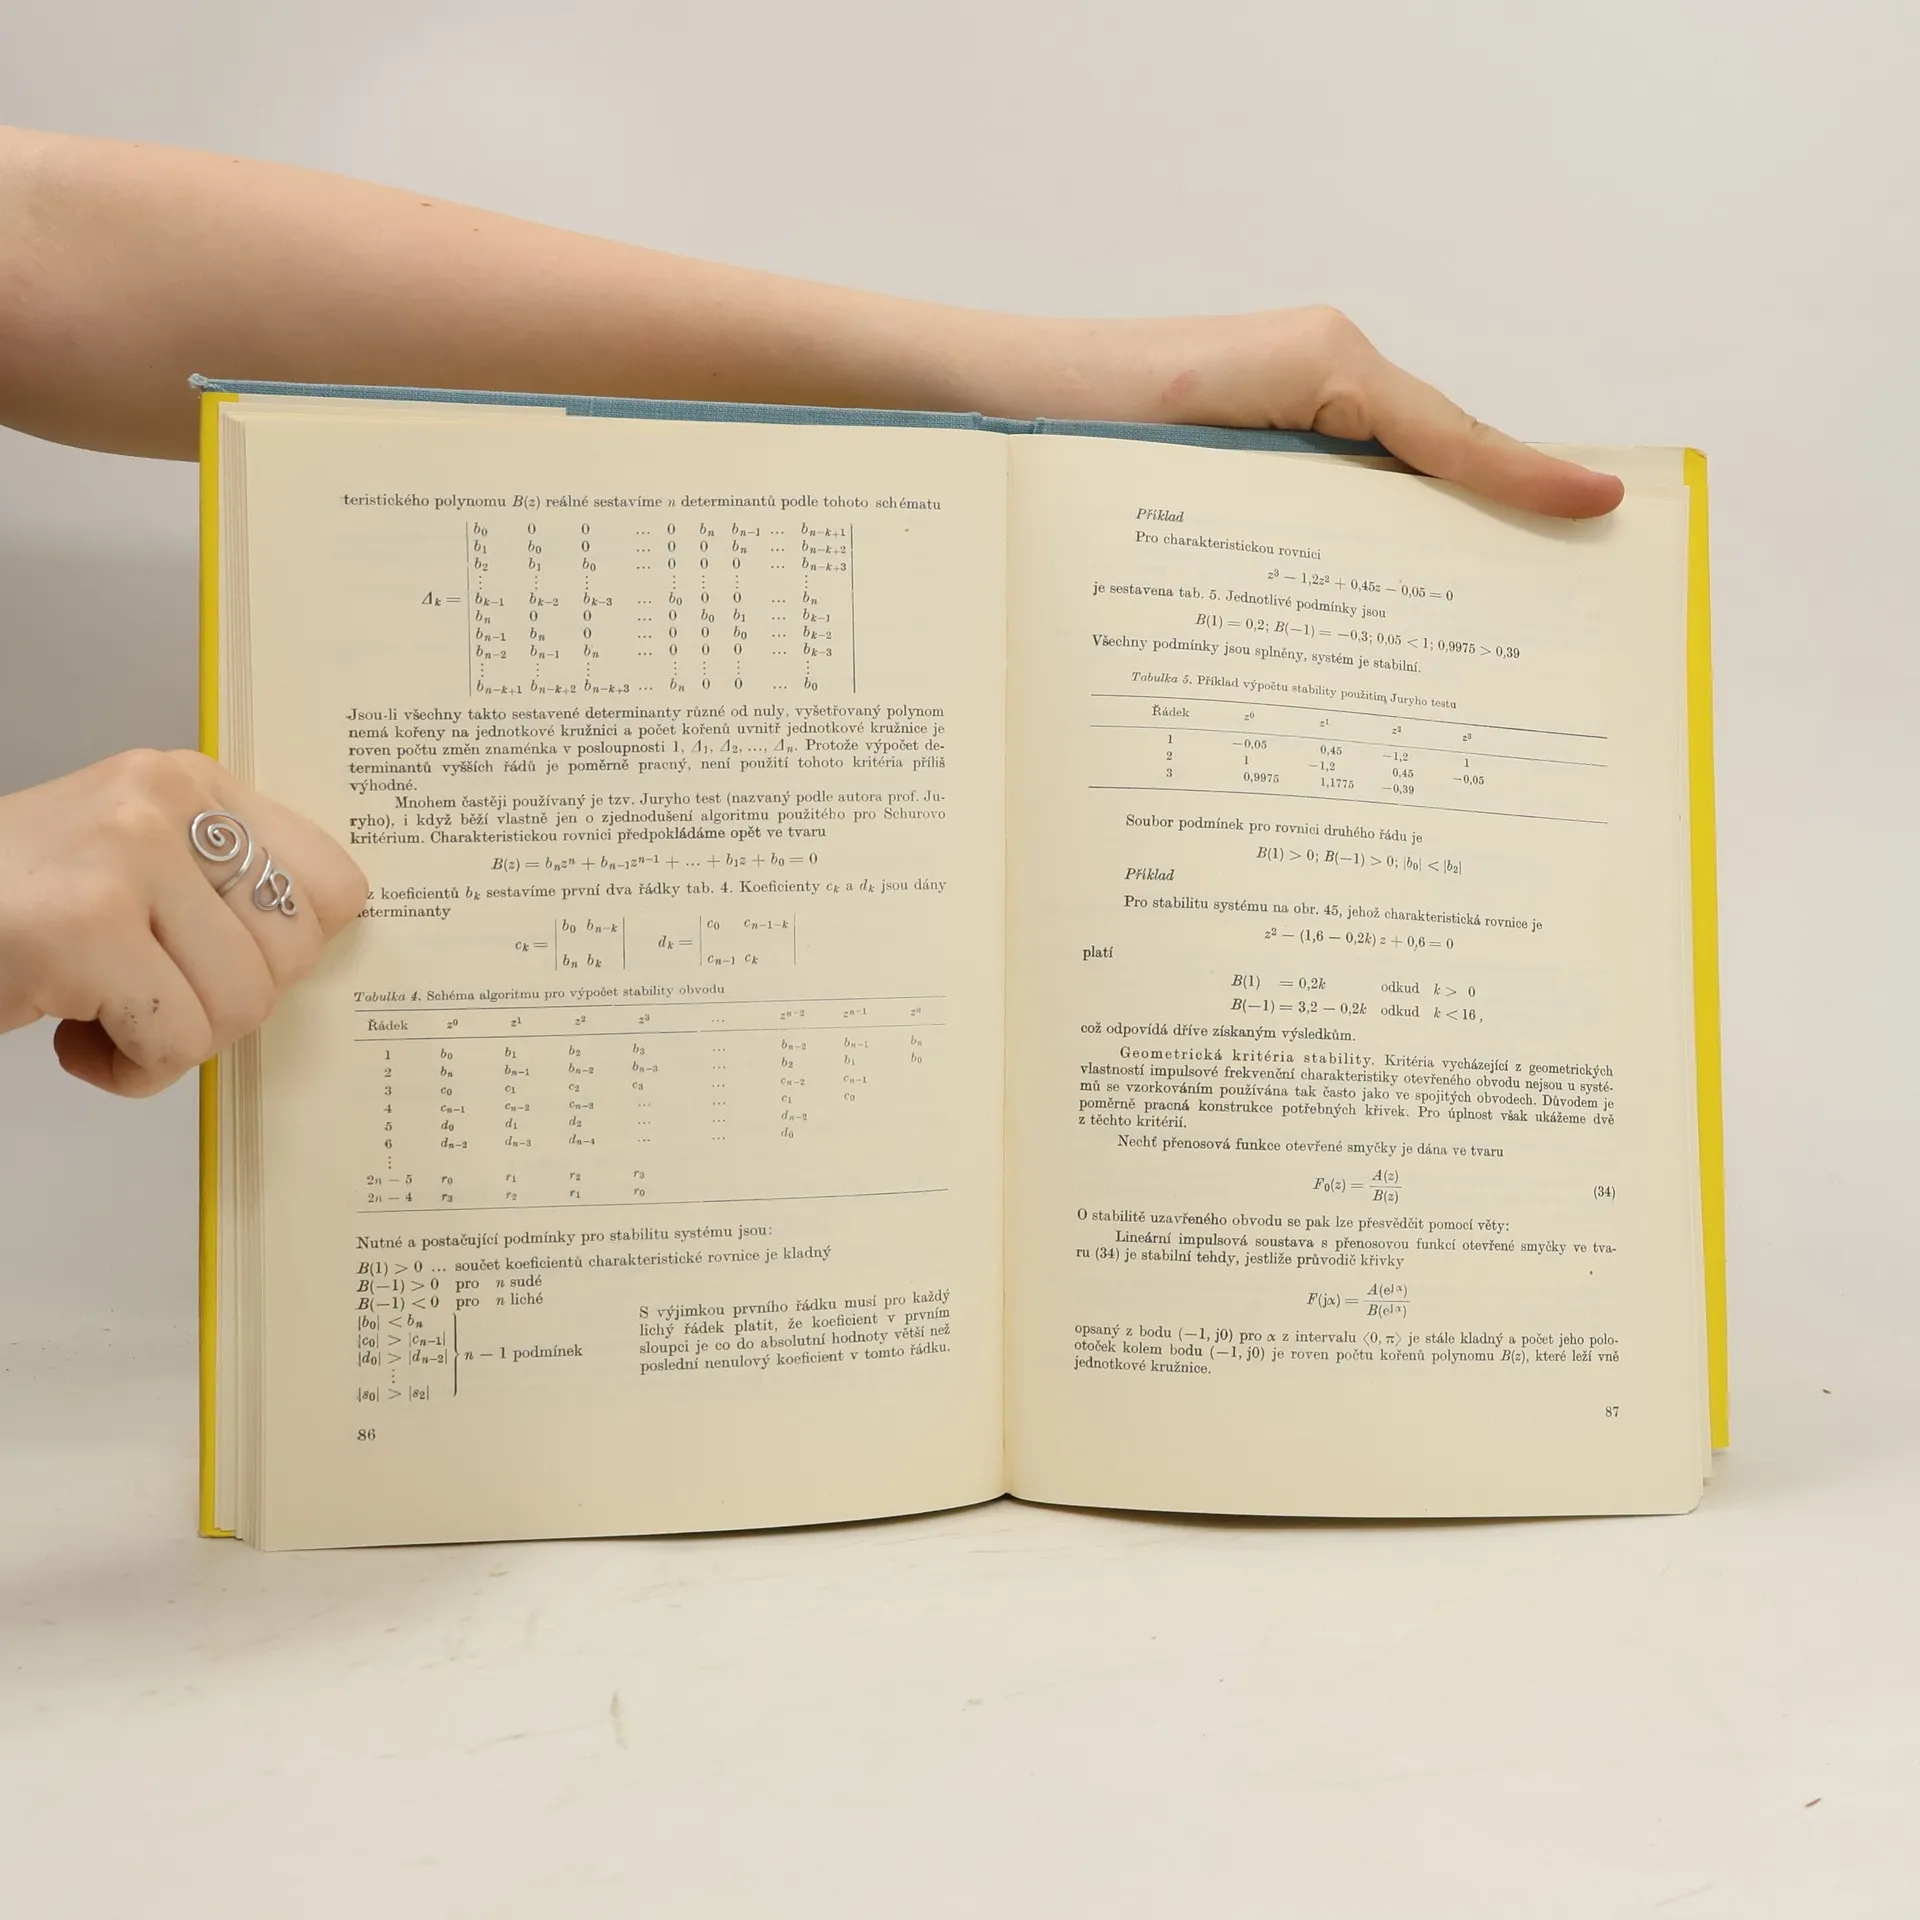 teristického polynomu B(z) reálné sestavíme n determinantů podle tohoto schématu
b₀ 0 0 ... 0 bₙ bₙ₋₁ ... bₙ₋ₖ₊₁
b₁ b₀ 0 ... 0 0 bₙ ... bₙ₋ₖ₊₂
b₂ b₁ b₀ ... 0 0 0 ... bₙ₋ₖ₊₃
⋮ ⋮ ⋮ ⋮ ⋮ ⋮ ⋮
Δₖ = bₖ₋₁ bₖ₋₂ bₖ₋₃ ... b₀ 0 0 ... bₙ
bₙ 0 0 ... 0 b₀ b₁ ... bₖ₋₁
bₙ₋₁ bₙ 0 ... 0 0 b₀ ... bₖ₋₂
bₙ₋₂ bₙ₋₁ bₙ ... 0 0 0 ... bₖ₋₃
⋮ ⋮ ⋮ ⋮ ⋮ ⋮ ⋮
bₙ₋ₖ₊₁ bₙ₋ₖ₊₂ bₙ₋ₖ₊₃ ... bₙ 0 0 ... b₀
Jsou-li všechny takto sestavené determinanty různé od nuly, vyšetřovaný polynom
nemá kořeny na jednotkové kružnici a počet kořenů uvnitř jednotkové kružnice je
roven počtu změn znaménka v posloupnosti 1, Δ₁, Δ₂, ..., Δₙ. Protože výpočet de-
terminantů vyšších řádů je poměrně pracný, není použití tohoto kritéria příliš
výhodné.
Mnohem častěji používaný je tzv. Juryho test (nazvaný podle autora prof. Ju-
ryho), i když běží vlastně jen o zjednodušení algoritmu použitého pro Schurovo
kritérium. Charakteristickou rovnici předpokládáme opět ve tvaru
B(z) = bₙzⁿ + bₙ₋₁zⁿ⁻¹ + ... + b₁z + b₀ = 0
z koeficientů bₖ sestavíme první dva řádky tab. 4. Koeficienty cₖ a dₖ jsou dány
eterminanty
cₖ = |b₀ bₙ₋ₖ| dₖ = |c₀ cₙ₋₁₋ₖ|
|bₙ bₖ| |cₙ₋₁ cₖ|
Tabulka 4. Schéma algoritmu pro výpočet stability obvodu
Řádek z⁰ z¹ z² z³ ... zⁿ⁻² zⁿ⁻¹ zⁿ
1 b₀ b₁ b₂ b₃ ... bₙ₋₂ bₙ₋₁ bₙ
2 bₙ bₙ₋₁ bₙ₋₂ bₙ₋₃ ... b₂ b₁ b₀
3 c₀ c₁ c₂ c₃ ... cₙ₋₂ cₙ₋₁
4 cₙ₋₁ cₙ₋₂ cₙ₋₃ ... ... c₁ c₀
5 d₀ d₁ d₂ ... ... dₙ₋₂
6 dₙ₋₂ dₙ₋₃ dₙ₋₄ ... ... d₀
⋮
2n — 5 r₀ r₁ r₂ r₃
2n — 4 r₃ r₂ r₁ r₀
Nutné a postačující podmínky pro stabilitu systému jsou:
B(1) > 0 ... součet koeficientů charakteristické rovnice je kladný
B(—1) > 0 pro n sudé
B(—1) < 0 pro n liché
|b₀| < bₙ
|c₀| > |cₙ₋₁|
|d₀| > |dₙ₋₂|
⋮
|s₀| > |s₂|
n — 1 podmínek
S výjimkou prvního řádku musí pro každý
lichý řádek platit, že koeficient v prvním
sloupci je co do absolutní hodnoty větší než
poslední nenulový koeficient v tomto řádku.
86
Příklad
Pro charakteristickou rovnici
z³ — 1,2z² + 0,45z — 0,05 = 0
je sestavena tab. 5. Jednotlivé podmínky jsou
B(1) = 0,2; B(—1) = —0,3; 0,05 < 1; 0,9975 > 0,39
Všechny podmínky jsou splněny, systém je stabilní.
Tabulka 5. Příklad výpočtu stability použitím Juryho testu
Řádek z⁰ z¹ z² z³
1 —0,05 0,45 —1,2 1
2 1 —1,2 0,45 —0,05
3 0,9975 1,1775 —0,39
Soubor podmínek pro rovnici druhého řádu je
B(1) > 0; B(—1) > 0; |b₀| < |b₂|
Příklad
Pro stabilitu systému na obr. 45, jehož charakteristická rovnice je
z² — (1,6 — 0,2k) z + 0,6 = 0
platí
B(1) = 0,2k odkud k > 0
B(—1) = 3,2 — 0,2k odkud k < 16,
což odpovídá dříve získaným výsledkům.
Geometrická kritéria stability. Kritéria vycházející z geometrických
vlastností impulsové frekvenční charakteristiky otevřeného obvodu nejsou u systé-
mů se vzorkováním používána tak často jako ve spojitých obvodech. Důvodem je
poměrně pracná konstrukce potřebných křivek. Pro úplnost však ukážeme dvě
z těchto kritérií.
Nechť přenosová funkce otevřené smyčky je dána ve tvaru
F₀(z) = A(z)/B(z) (34)
O stabilitě uzavřeného obvodu se pak lze přesvědčit pomocí věty:
Lineární impulsová soustava s přenosovou funkcí otevřené smyčky ve tva-
ru (34) je stabilní tehdy, jestliže průvodič křivky
F(jα) = A(e^jα)/B(e^jα)
opsaný z bodu (—1, j0) pro α z intervalu ⟨0, π⟩ je stále kladný a počet jeho polo-
otoček kolem bodu (—1, j0) je roven počtu kořenů polynomu B(z), které leží vně
jednotkové kružnice.
87